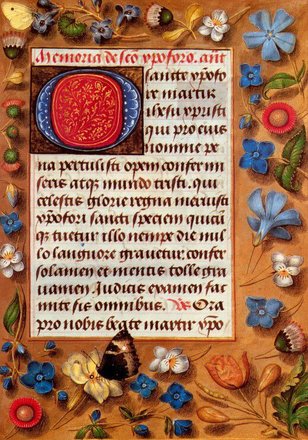 Memoria de sc̄o xpoforo. añt
O sancte xpofo
re martir
ihesu xpristi
qui pro eius
nomine pe
na pertulisti opem confer mi
seris atqꝫ mundo tristi. Qui
celestis glorie regna meruisti
xpofori sancti speciem quicū
qꝫ tuetur illo nempe die nul
lo languore grauetur. confer
solamen et mentis tolle gra
uamen. Judicis examen fac
mite sis omnibus. Vs Ora
pro nobis beate martir xpo